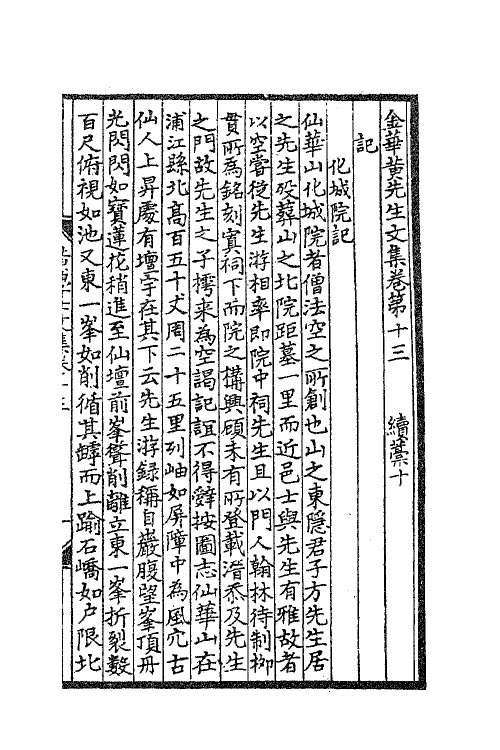 金華黃先生文集卷第十三　續藁十
記
化城院記
仙華山化城院者僧法空之所創也山之東隱君子方先生居
之先生歿葬山之北院距墓一里而近邑士與先生有雅故者
以空嘗從先生游相率即院中祠先生且以門人翰林待制柳
貫所爲銘刻寘祠下而院之構興顧未有所登載潛忝及先生
之門故先生之子樗來為空謁記誼不得辤按圖志仙華山在
浦江縣北高百五十丈周二十五里列岫如屏障中為風穴古
仙人上昇處有壇宇在其下云先生游録稱自巖腹望峯頂丹
光閃閃如寶蓮花稍進至仙壇前峯聳削離立東一峯折裂數
百尺俯視如池又東一峯如削循其罅而上踰石嶠如户限北